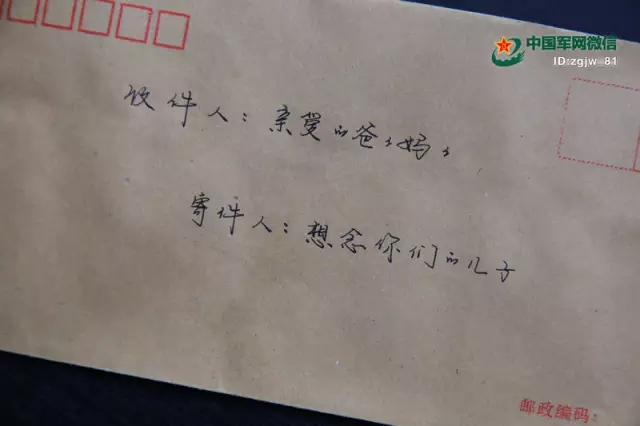 中国军网微信
ID:zgjw_81
收件人：亲爱的爸爸妈妈
寄件人：想念你们的儿子
邮政编码：